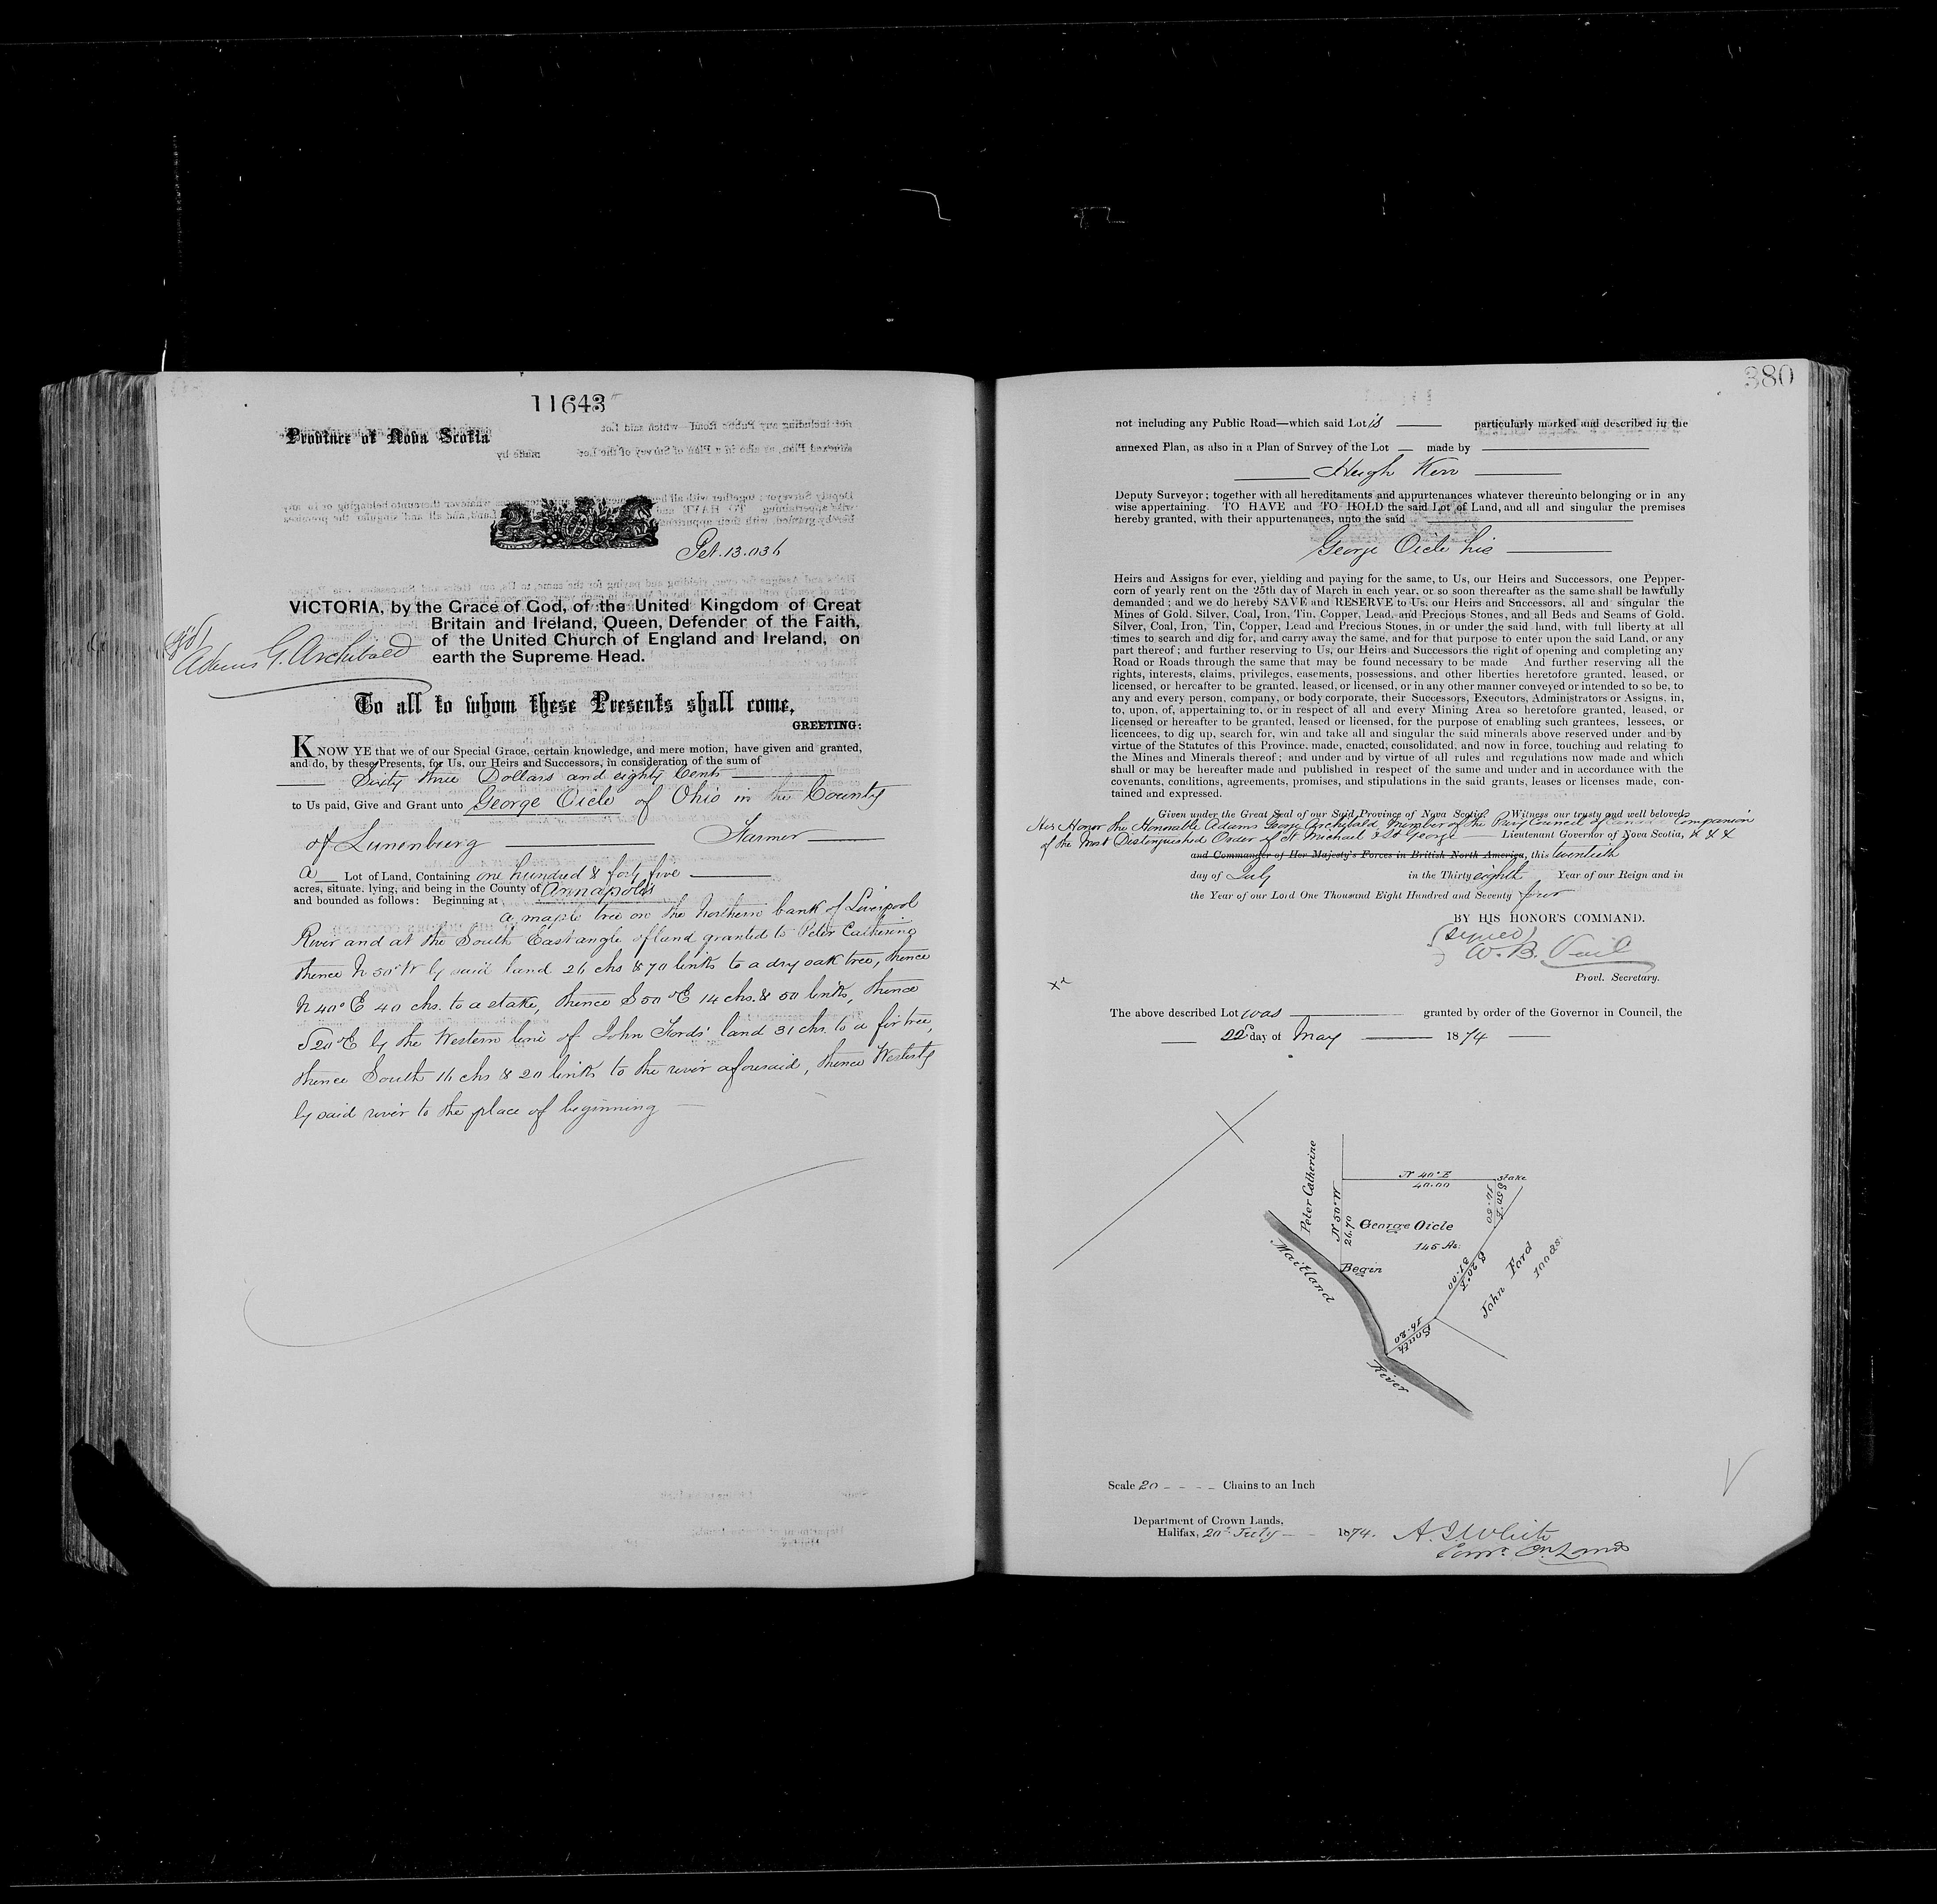 11643
Province of Nova Scotia
Pet. 13.036
VICTORIA, by the Grace of God, of the United Kingdom of Great
Britain and Ireland, Queen, Defender of the Faith,
of the United Church of England and Ireland, on
earth the Supreme Head.
Adams G. Archibald
To all to whom these Presents shall come,
GREETING:
KNOW YE that we of our Special Grace, certain knowledge, and mere motion, have given and granted,
and do, by these Presents, for Us, our Heirs and Successors, in consideration of the sum of
Sixty three Dollars and eighty Cents
to Us paid, Give and Grant unto George Oicle of Ohio in the County
of Lunenburg Farmer
a Lot of Land, Containing one hundred & forty five
acres, situate, lying, and being in the County of Annapolis
and bounded as follows: Beginning at
a maple tree on the Northern bank of Liverpool
River and at the South East angle of land granted to Peter Catherine
thence N 50° W by said land 26 chs & 70 links to a dry oak tree, thence
N 40° E 40 chs. to a stake, thence S 50° E 14 chs. & 50 links, thence
S 20° E by the Western line of John Fords' land 31 chs. to a fir tree,
thence South 16 chs & 20 links to the river aforesaid, thence Westerly
by said river to the place of beginning
380
not including any Public Road—which said Lot is particularly marked and described in the
annexed Plan, as also in a Plan of Survey of the Lot made by
Hugh Kerr
Deputy Surveyor; together with all hereditaments and appurtenances whatever thereunto belonging or in any
wise appertaining. TO HAVE and TO HOLD the said Lot of Land, and all and singular the premises
hereby granted, with their appurtenances, unto the said
George Oicle his
Heirs and Assigns for ever, yielding and paying for the same, to Us, our Heirs and Successors, one Pepper-
corn of yearly rent on the 25th day of March in each year, or so soon thereafter as the same shall be lawfully
demanded; and we do hereby SAVE and RESERVE to Us, our Heirs and Successors, all and singular the
Mines of Gold, Silver, Coal, Iron, Tin, Copper, Lead, and Precious Stones, and all Beds and Seams of Gold,
Silver, Coal, Iron, Tin, Copper, Lead and Precious Stones, in or under the said land, with full liberty at all
times to search and dig for, and carry away the same, and for that purpose to enter upon the said Land, or any
part thereof; and further reserving to Us, our Heirs and Successors the right of opening and completing any
Road or Roads through the same that may be found necessary to be made And further reserving all the
rights, interests, claims, privileges, easements, possessions, and other liberties heretofore granted, leased, or
licensed, or hereafter to be granted, leased, or licensed, or in any other manner conveyed or intended to so be, to
any and every person, company, or body corporate, their Successors, Executors, Administrators or Assigns, in,
to, upon, of, appertaining to, or in respect of all and every Mining Area so heretofore granted, leased, or
licensed or hereafter to be granted, leased or licensed, for the purpose of enabling such grantees, lessees, or
licencees, to dig up, search for, win and take all and singular the said minerals above reserved under and by
virtue of the Statutes of this Province, made, enacted, consolidated, and now in force, touching and relating to
the Mines and Minerals thereof; and under and by virtue of all rules and regulations now made and which
shall or may be hereafter made and published in respect of the same and under and in accordance with the
covenants, conditions, agreements, promises, and stipulations in the said grants, leases or licenses made, con-
tained and expressed.
Given under the Great Seal of our Said Province of Nova Scotia. Witness our trusty and well beloved
His Honor the Honorable Adams George Archibald, Member of the Privy Council of Canada Companion
of the Most Distinguished Order of St Michael & St George Lieutenant Governor of Nova Scotia, & & &
and Commander of Her Majesty's Forces in British North America, this twentieth
day of July in the Thirty eighth Year of our Reign and in
the Year of our Lord One Thousand Eight Hundred and Seventy four
BY HIS HONOR'S COMMAND.
(signed)
W. B. Vail
Provl. Secretary.
The above described Lot was granted by order of the Governor in Council, the
22d day of May 1874
N 40° E
40.00
stake
S 50° E
14.50
Peter Catherine
N 50° W
26.70
George Oicle
145 As.
Begin
S 20° E
31.00
John Ford
100 as.
South
16.20
Maitland
River
Scale 20 Chains to an Inch
Department of Crown Lands,
Halifax, 20th July 1874.
A. J. White
Comr. Cn. Lands